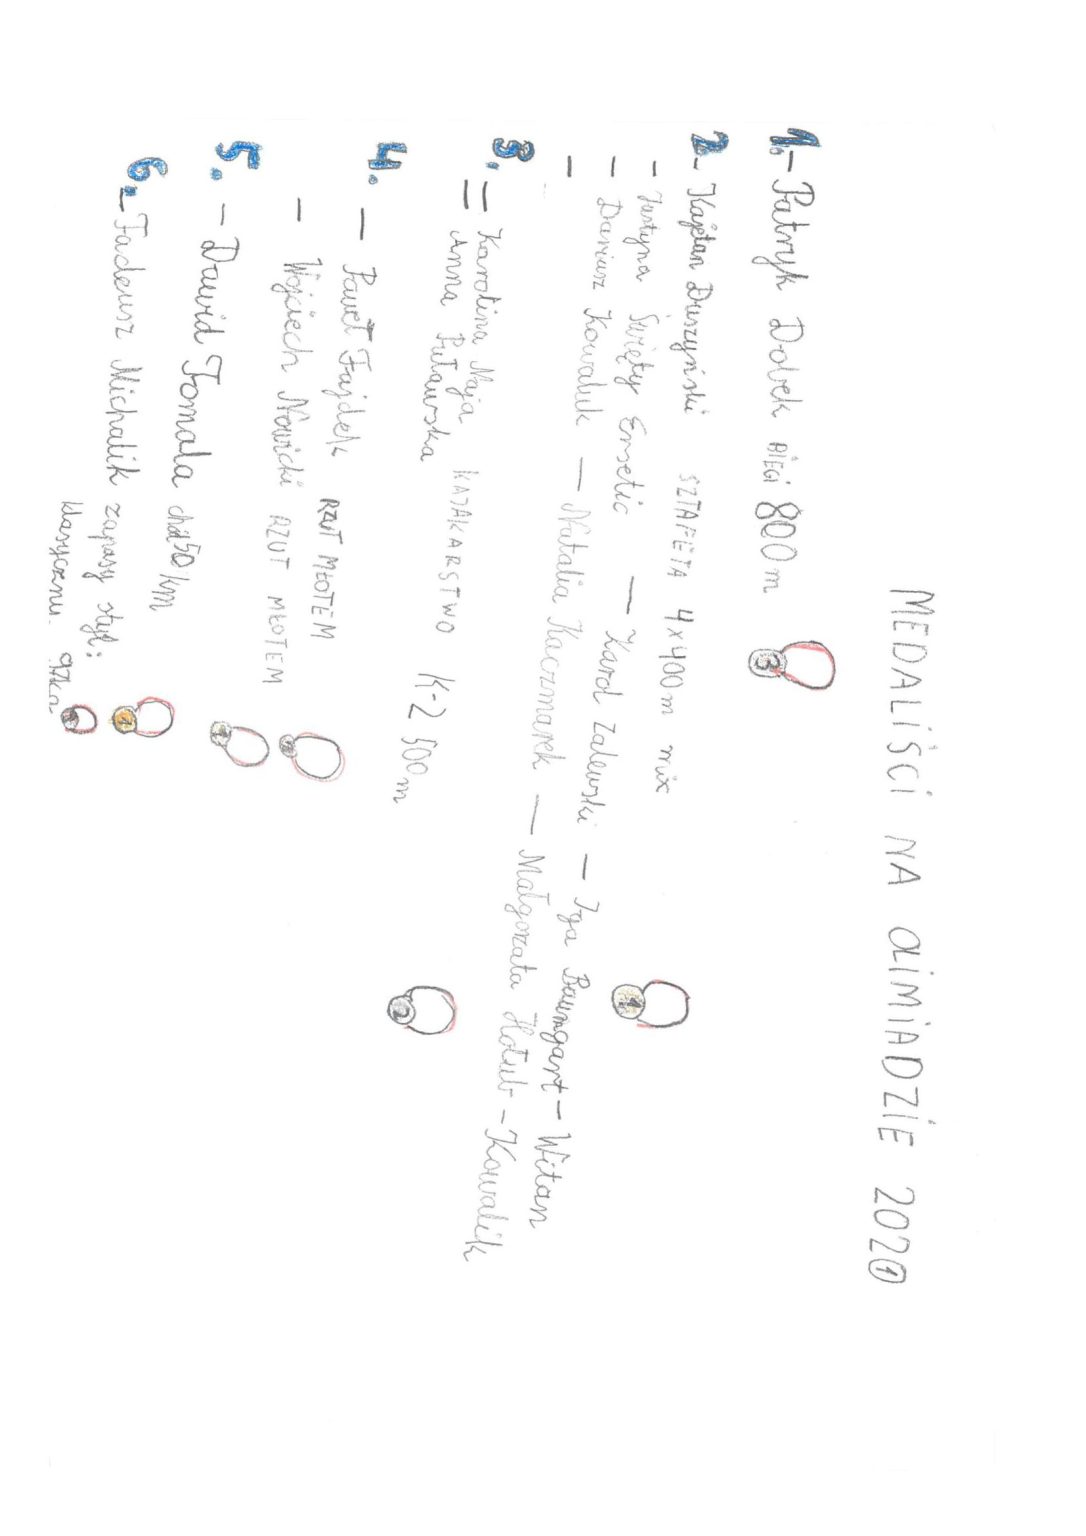 MEDALIŚCI NA OLIMIADZIE 2020
1. - Patryk Dobek BIEGI 800 m 3
2. - Kajetan Duszyński SZTAFETA 4x400m mix
- Justyna Święty Ersetic - Karol Zalewski - Iga Baumgart - Witan
- Dariusz Kowaluk - Natalia Kaczmarek - Małgorzata Hołub - Kowalik
1
3. - Karolina Naja
- Anna Puławska KAJAKARSTWO K-2 500 m
2
4. - Paweł Fajdek RZUT MŁOTEM
- Wojciech Nowicki RZUT MŁOTEM
5. - Dawid Tomala chód 50 km 1
6. - Tadeusz Michalik zapasy styl:
klasyczny. 97kg